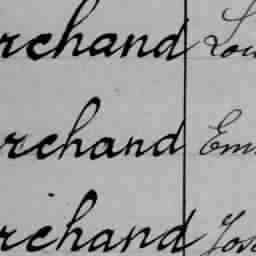 rchand Lou
rchand Em
rchand Jos